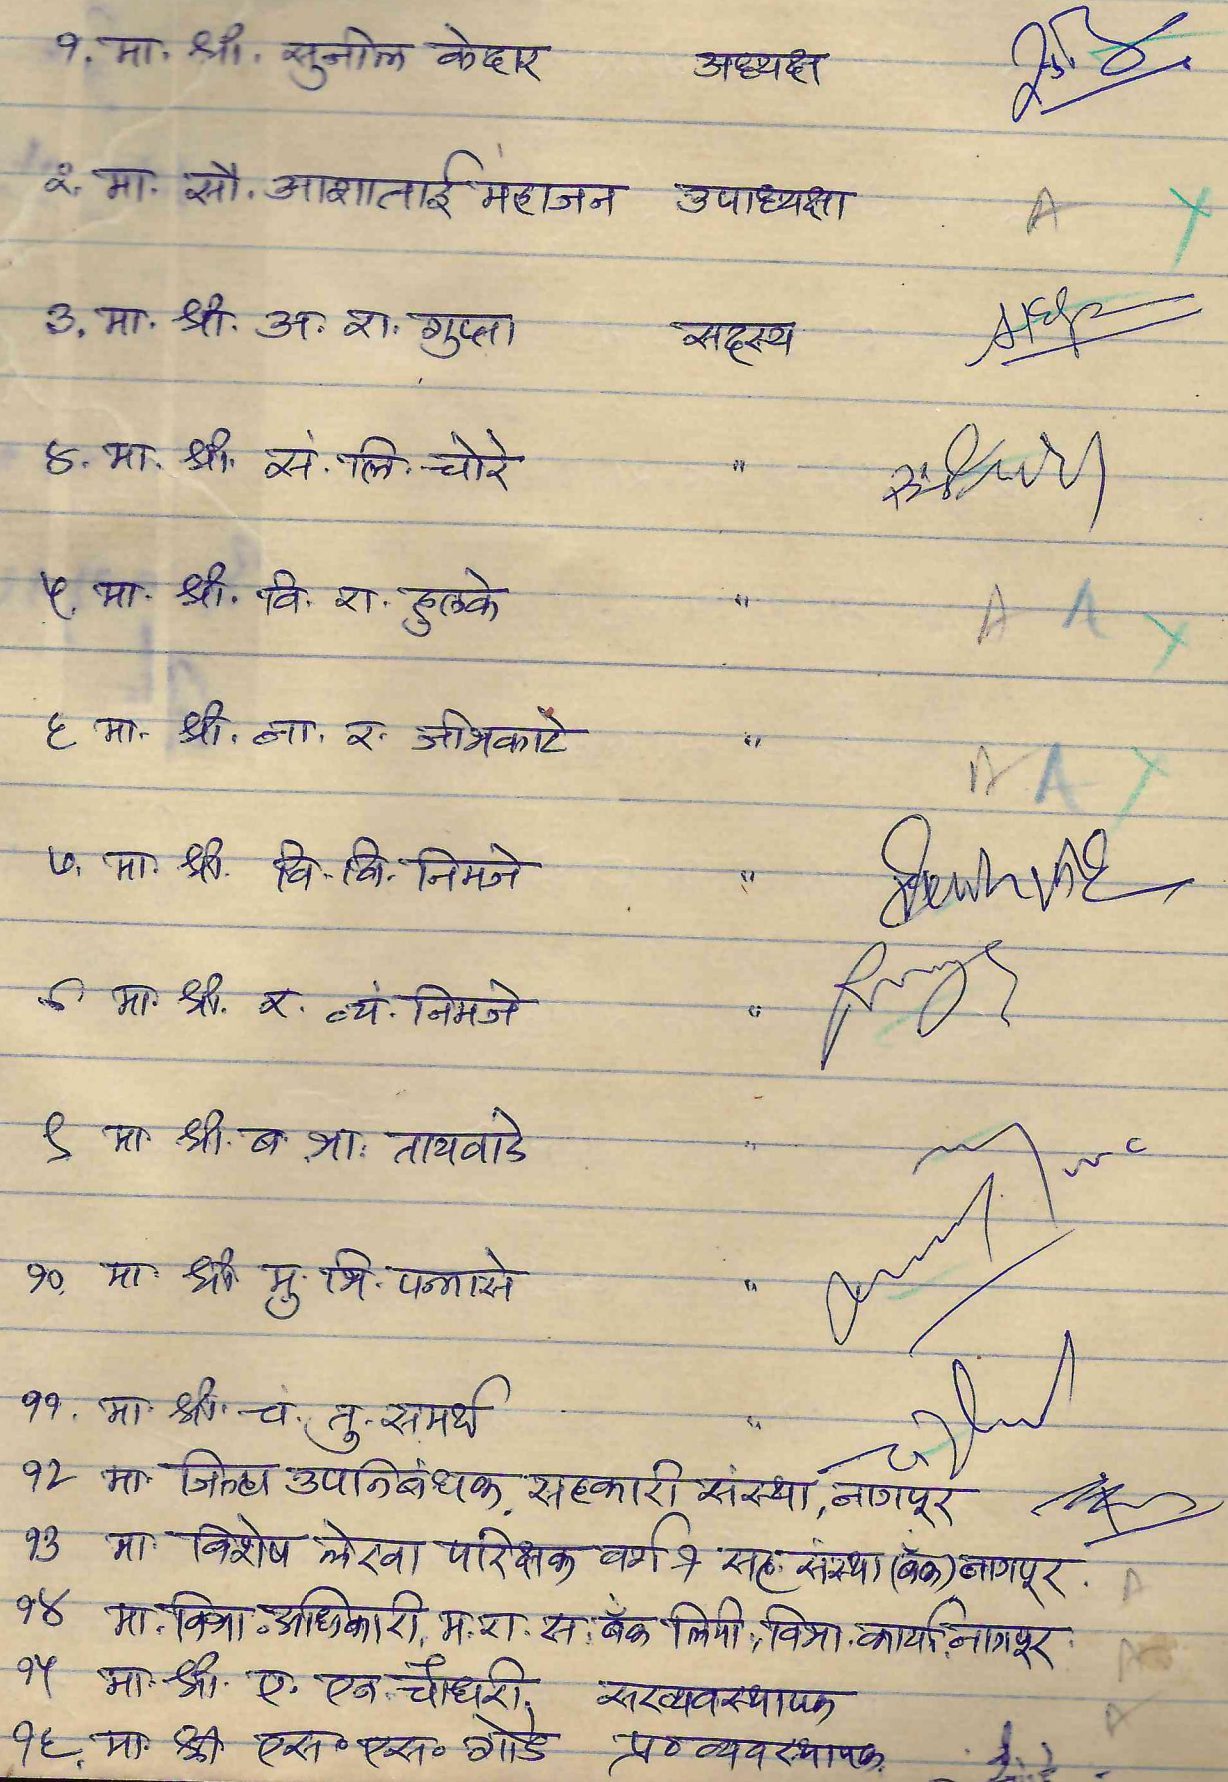 १. मा. श्री. सुनील केदार अध्यक्ष
२. मा. सौ. आशाताई महाजन उपाध्यक्षा A
३. मा. श्री. अ. रा. गुप्ता सदस्य
४. मा. श्री. सं. लि. चोरे "
५. मा. श्री. वि. रा. हुलके " A A
६ मा. श्री. ना. र. जीभकाटे " A A
७. मा. श्री. वि. कि. निमजे "
८ मा. श्री. र. व्यं. निमजे "
९ मा श्री. ब. भा. तायवाडे "
१० मा श्री मु. शि. पन्नासे "
११. मा. श्री. चं. तु. समर्थ "
१२ मा. जिल्हा उपनिबंधक, सहकारी संस्था, नागपूर
१३ मा. विशेष लेखा परिक्षक वर्ग १ सह. संस्था (बँक) नागपूर. A
१४ मा. विभा. अधिकारी, म. रा. स. बँक लिमी., विभा. कार्या. नागपूर. A
१५ मा. श्री. ए. एन. चौधरी. सरव्यवस्थापक A
१६. मा. श्री एस॰ एस॰ गोडे प्र॰ व्यवस्थापक.